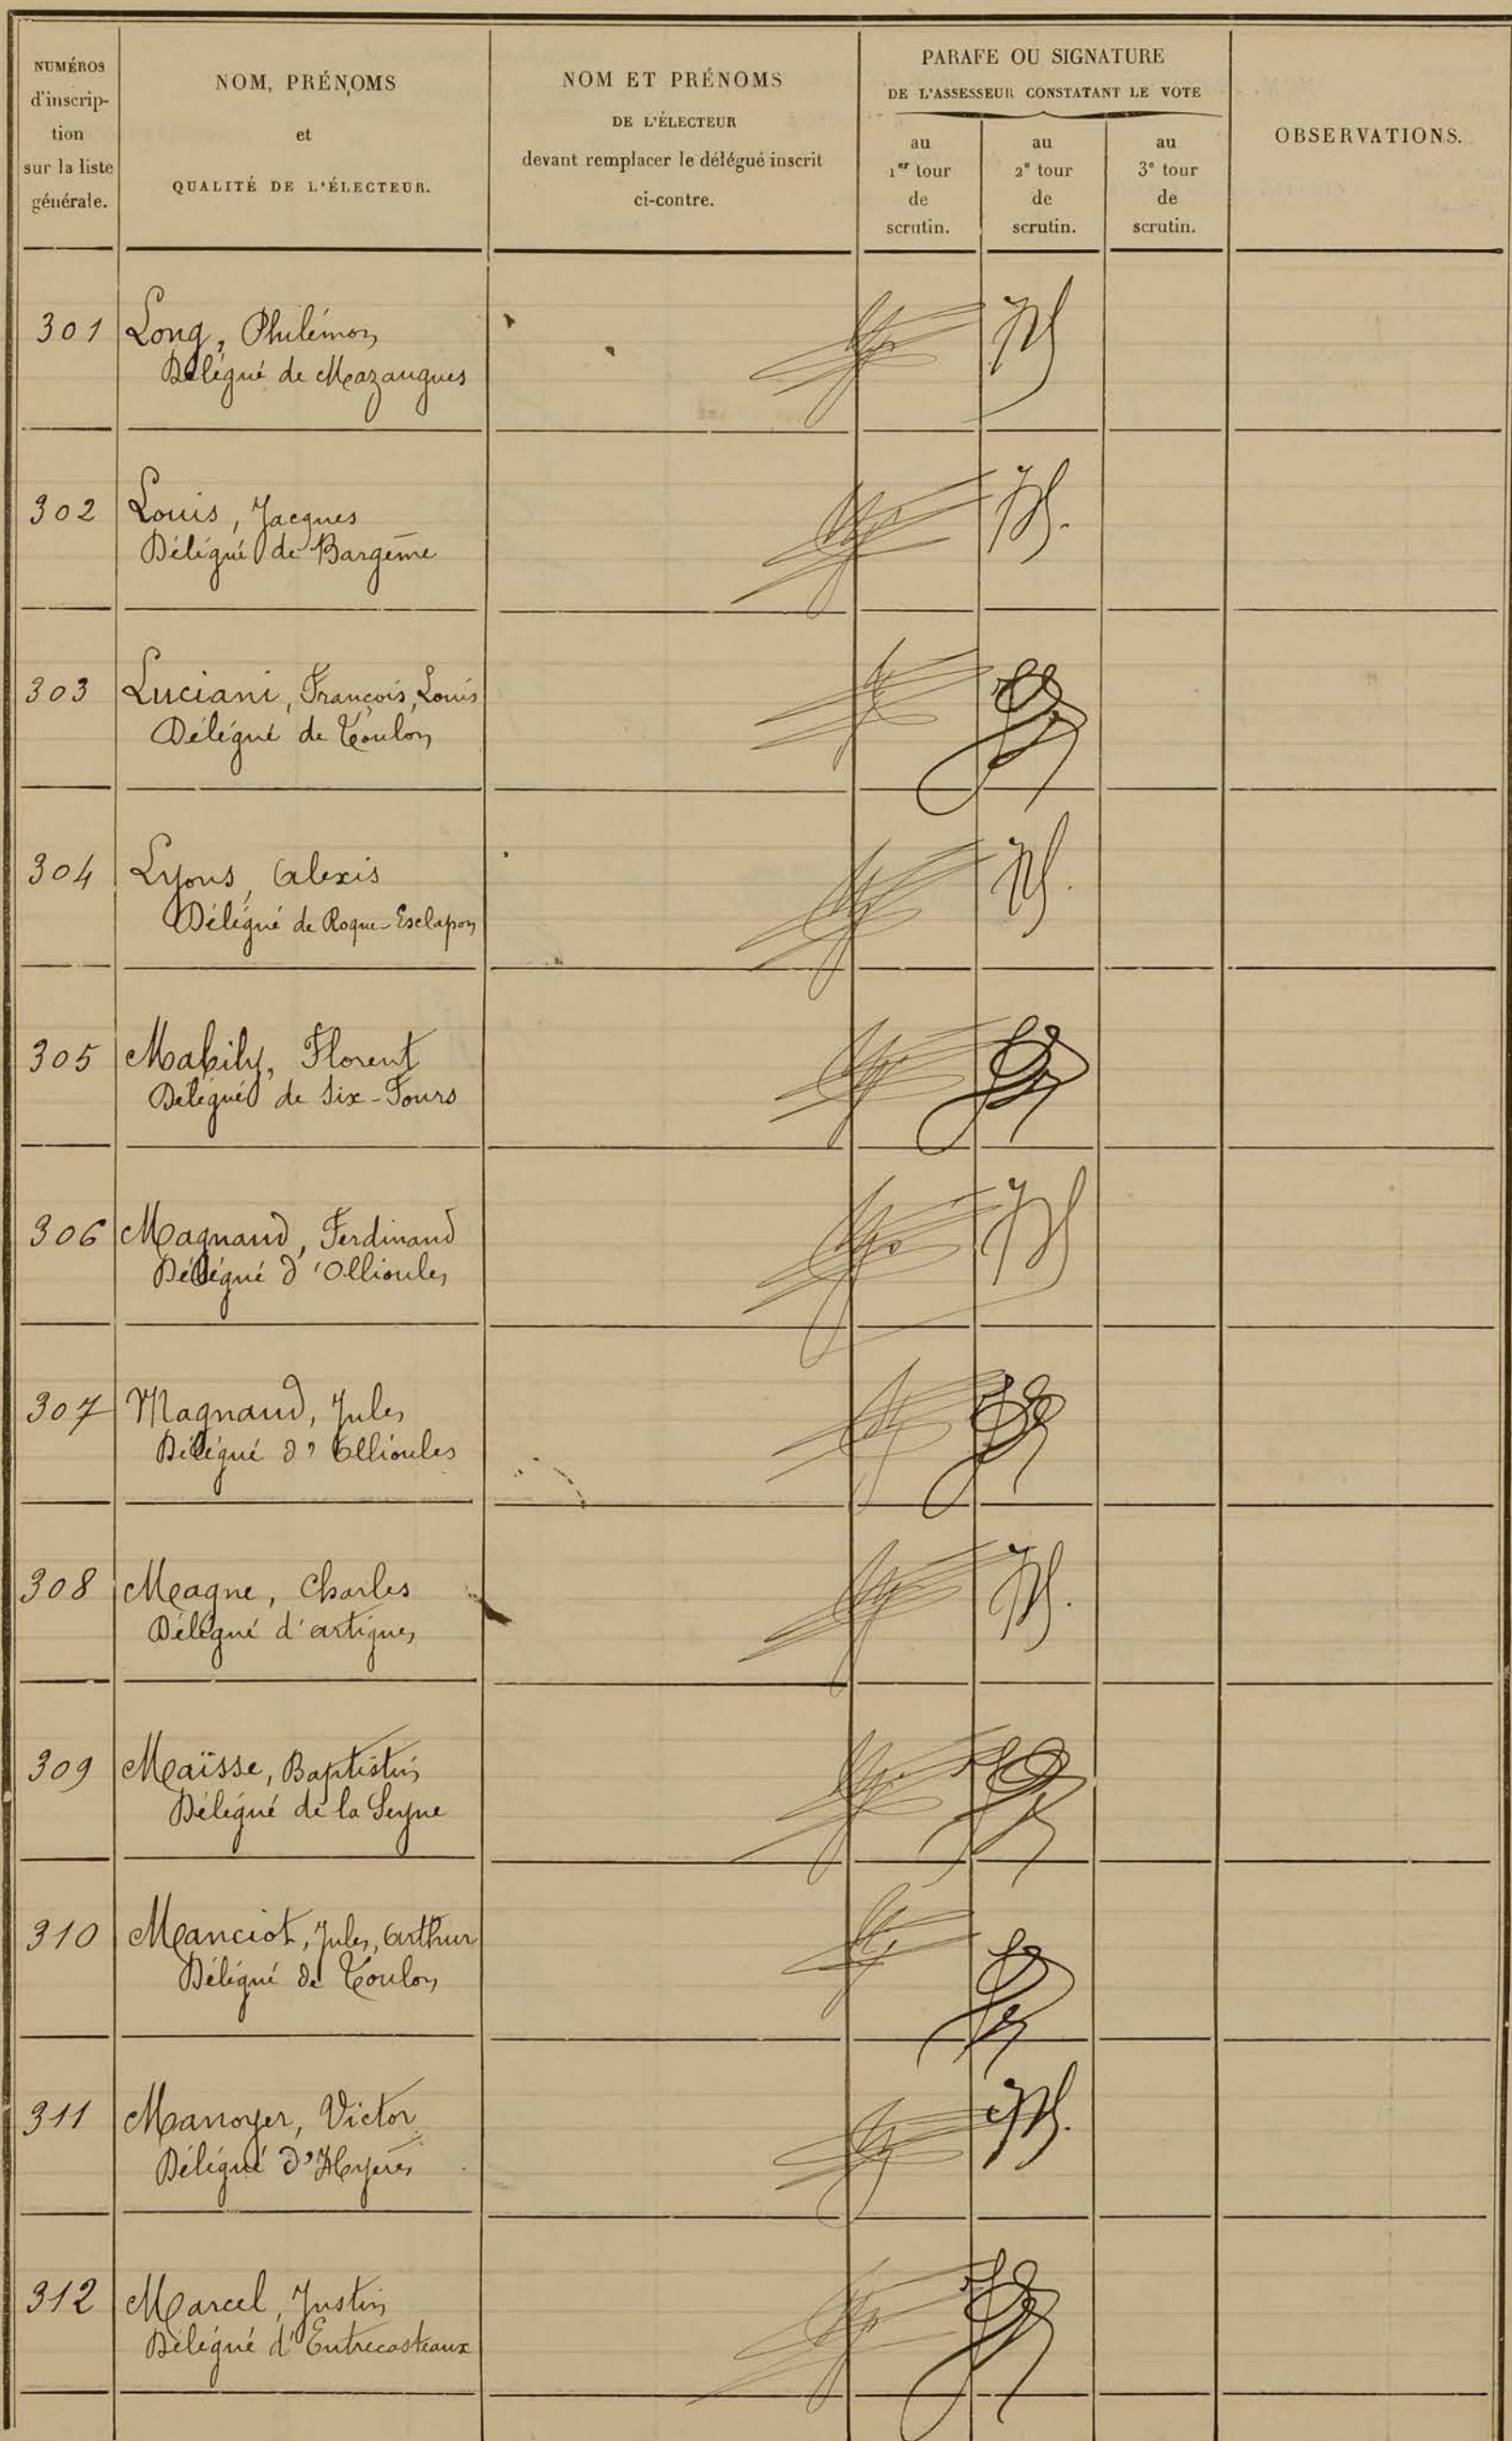 NUMÉROS
d'inscrip-
tion
sur la liste
générale.
NOM, PRÉNOMS
et
QUALITÉ DE L'ÉLECTEUR.
NOM ET PRÉNOMS
DE L'ÉLECTEUR
devant remplacer le délégué inscrit
ci-contre.
PARAFE OU SIGNATURE
DE L'ASSESSEUR CONSTATANT LE VOTE
au
1er tour
de
scrutin.
au
2e tour
de
scrutin.
au
3e tour
de
scrutin.
OBSERVATIONS.
301 Long, Philémon
Délégué de Mazaugues
302 Louis, Jacques
Délégué de Bargème
303 Luciani, François, Louis
Délégué de Toulon
304 Lyons, Alexis
Délégué de Roque-Esclapon
305 Mabily, Florent
Délégué de Six-Fours
306 Magnaud, Ferdinand
Délégué d'Ollioules
307 Magnaud, Jules
Délégué d'Ollioules
308 Magne, Charles
Délégué d'Artigues
309 Maïsse, Baptistin
Délégué de la Seyne
310 Manciot, Jules, Arthur
Délégué de Toulon
311 Manoyer, Victor
Délégué d'Hyères
312 Marcel, Justin
Délégué d'Entrecasteaux